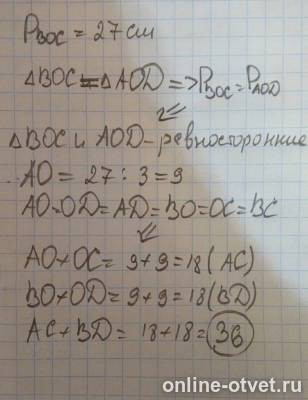 P_BOC = 27 см
△BOC = △AOD => P_BOC = P_AOD
⇙
△BOC и AOD - равносторонние
AO = 27 : 3 = 9
AO=OD=AD=BO=OC=BC
⇙
AO+OC = 9+9=18 (AC)
BO+OD= 9+9=18 (BD)
AC+BD= 18+18= 36
online-otvet.ru